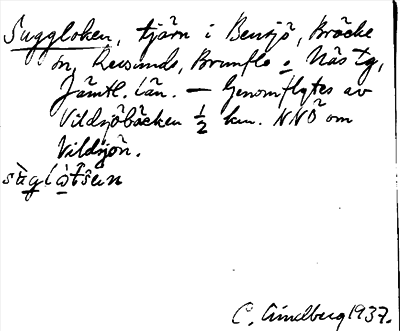 Suggloken, tjärn i Bensjö, Bräcke
sn, Revsunds, Brunflo o Näs tg,
Jämtl. län. — Genomflytes av
Vildsjöbäcken ½ km. NNÖ om
Vildsjön.
C. Lindberg 1937.